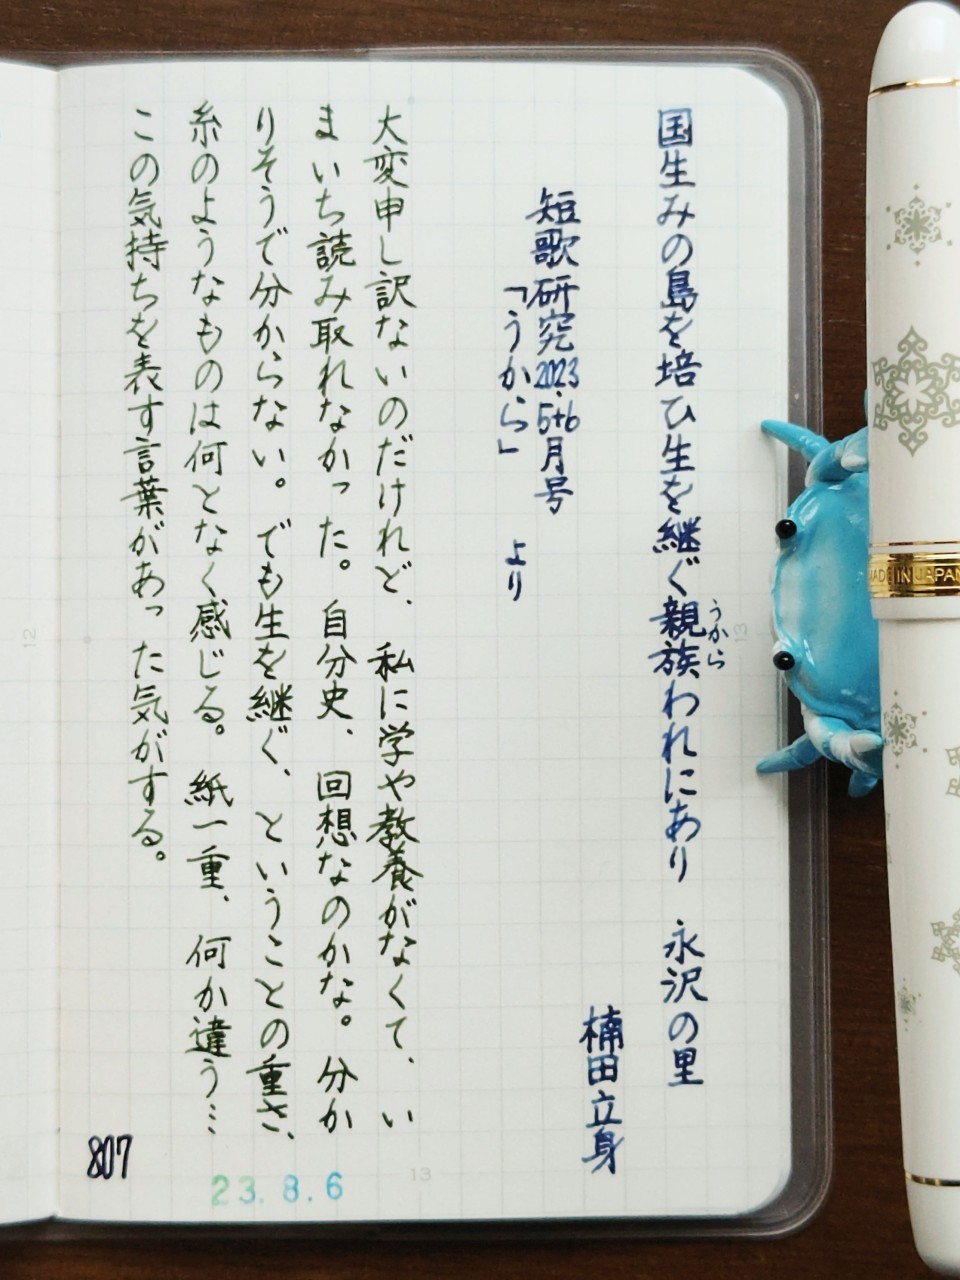 国生みの島を培ひ生を継ぐ親族われにあり　永沢の里
うから
楠田立身
短歌研究2023.5+6月号
「うから」　より
大変申し訳ないのだけれど、私に学や教養がなくて、い
まいち読み取れなかった。自分史、回想なのかな。分か
りそうで分からない。でも生を継ぐ、ということの重さ、
糸のようなものは何となく感じる。紙一重、何か違う…
この気持ちを表す言葉があった気がする。
807
23.8.6
13
12
13
MADE IN JAPAN